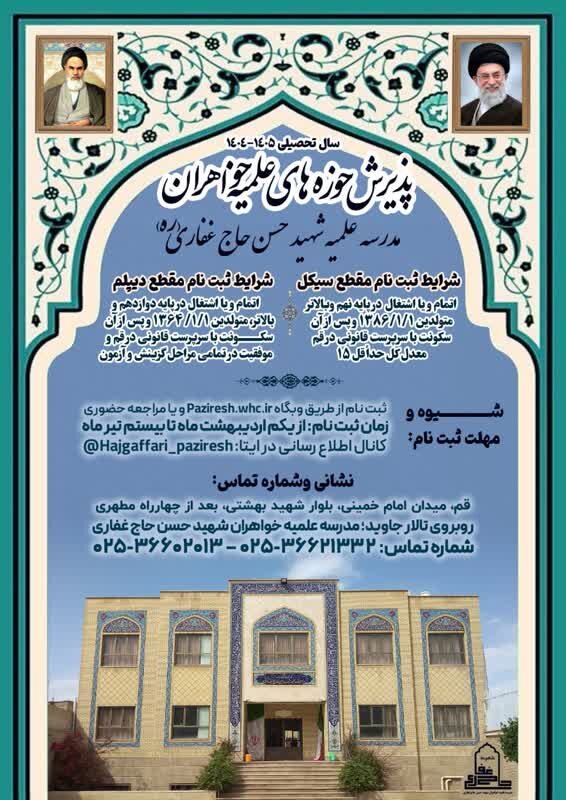 سال تحصیلی ۱۴۰۵-۱۴۰۴
پذیرش حوزه های علمیه خواهران
مدرسه علمیه شهید حسن حاج غفاری (ره)
شرایط ثبت نام مقطع سیکل
اتمام و یا اشتغال در پایه نهم و بالاتر
متولدین ۱۳۸۶/۱/۱ و پس از آن
سکونت با سرپرست قانونی در قم
معدل کل حداقل ۱۵
شرایط ثبت نام مقطع دیپلم
اتمام و یا اشتغال در پایه دوازدهم و
بالاتر، متولدین ۱۳۶۴/۱/۱ و پس از آن
سکونت با سرپرست قانونی در قم و
موفقیت در تمامی مراحل گزینش و آزمون
شیوه و
مهلت ثبت نام:
ثبت نام از طریق وبگاه Paziresh.whc.ir و یا مراجعه حضوری
زمان ثبت نام: از یکم اردیبهشت ماه تا بیستم تیر ماه
کانال اطلاع رسانی در ایتا: @Hajgaffari_paziresh
نشانی وشماره تماس:
قم، میدان امام خمینی، بلوار شهید بهشتی، بعد از چهارراه مطهری
روبروی تالار جاوید؛ مدرسه علمیه خواهران شهید حسن حاج غفاری
شماره تماس: ۰۲۵-۳۶۶۲۱۳۳۲ – ۰۲۵-۳۶۶۰۲۰۱۳